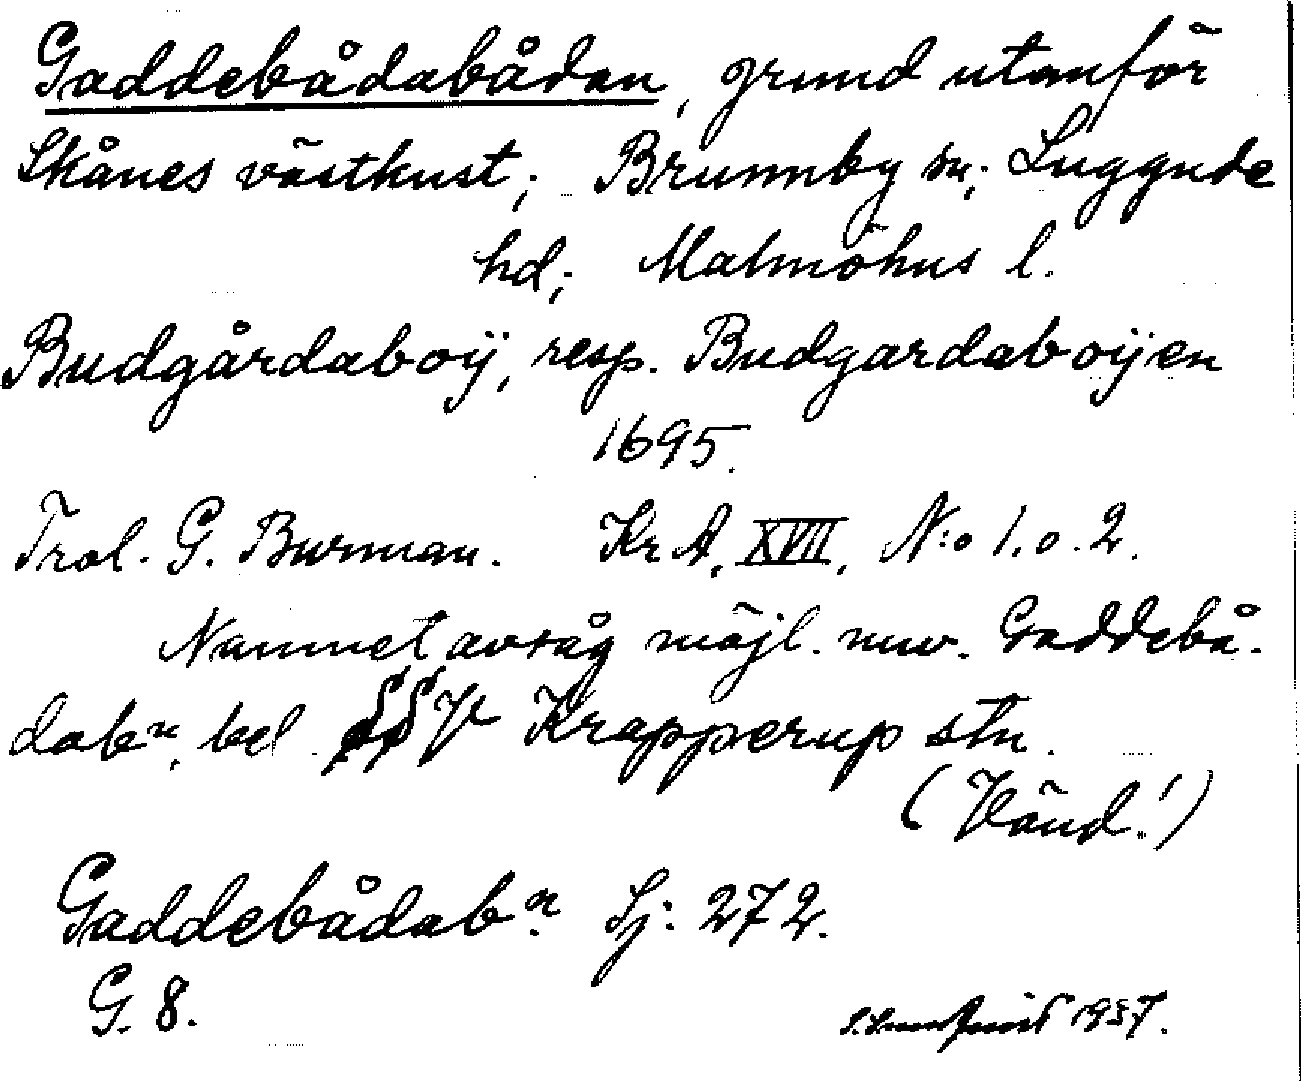 Gaddebådabådan, grund utanför
Skånes västkust; Brunnby sn; Luggude
hd; Malmöhus l.
Budgårdaboÿ, resp. Budgardaboÿen
1695.
Trol. G. Burman. Kr A, XVII, N:o 1. o. 2.
Namnet avsåg möjl. nuv. Gaddebå-
dabn, bel V Krapperup stn.
(Händ!)
Gaddebådabn. Sj: 272.
G. 8.
1937.